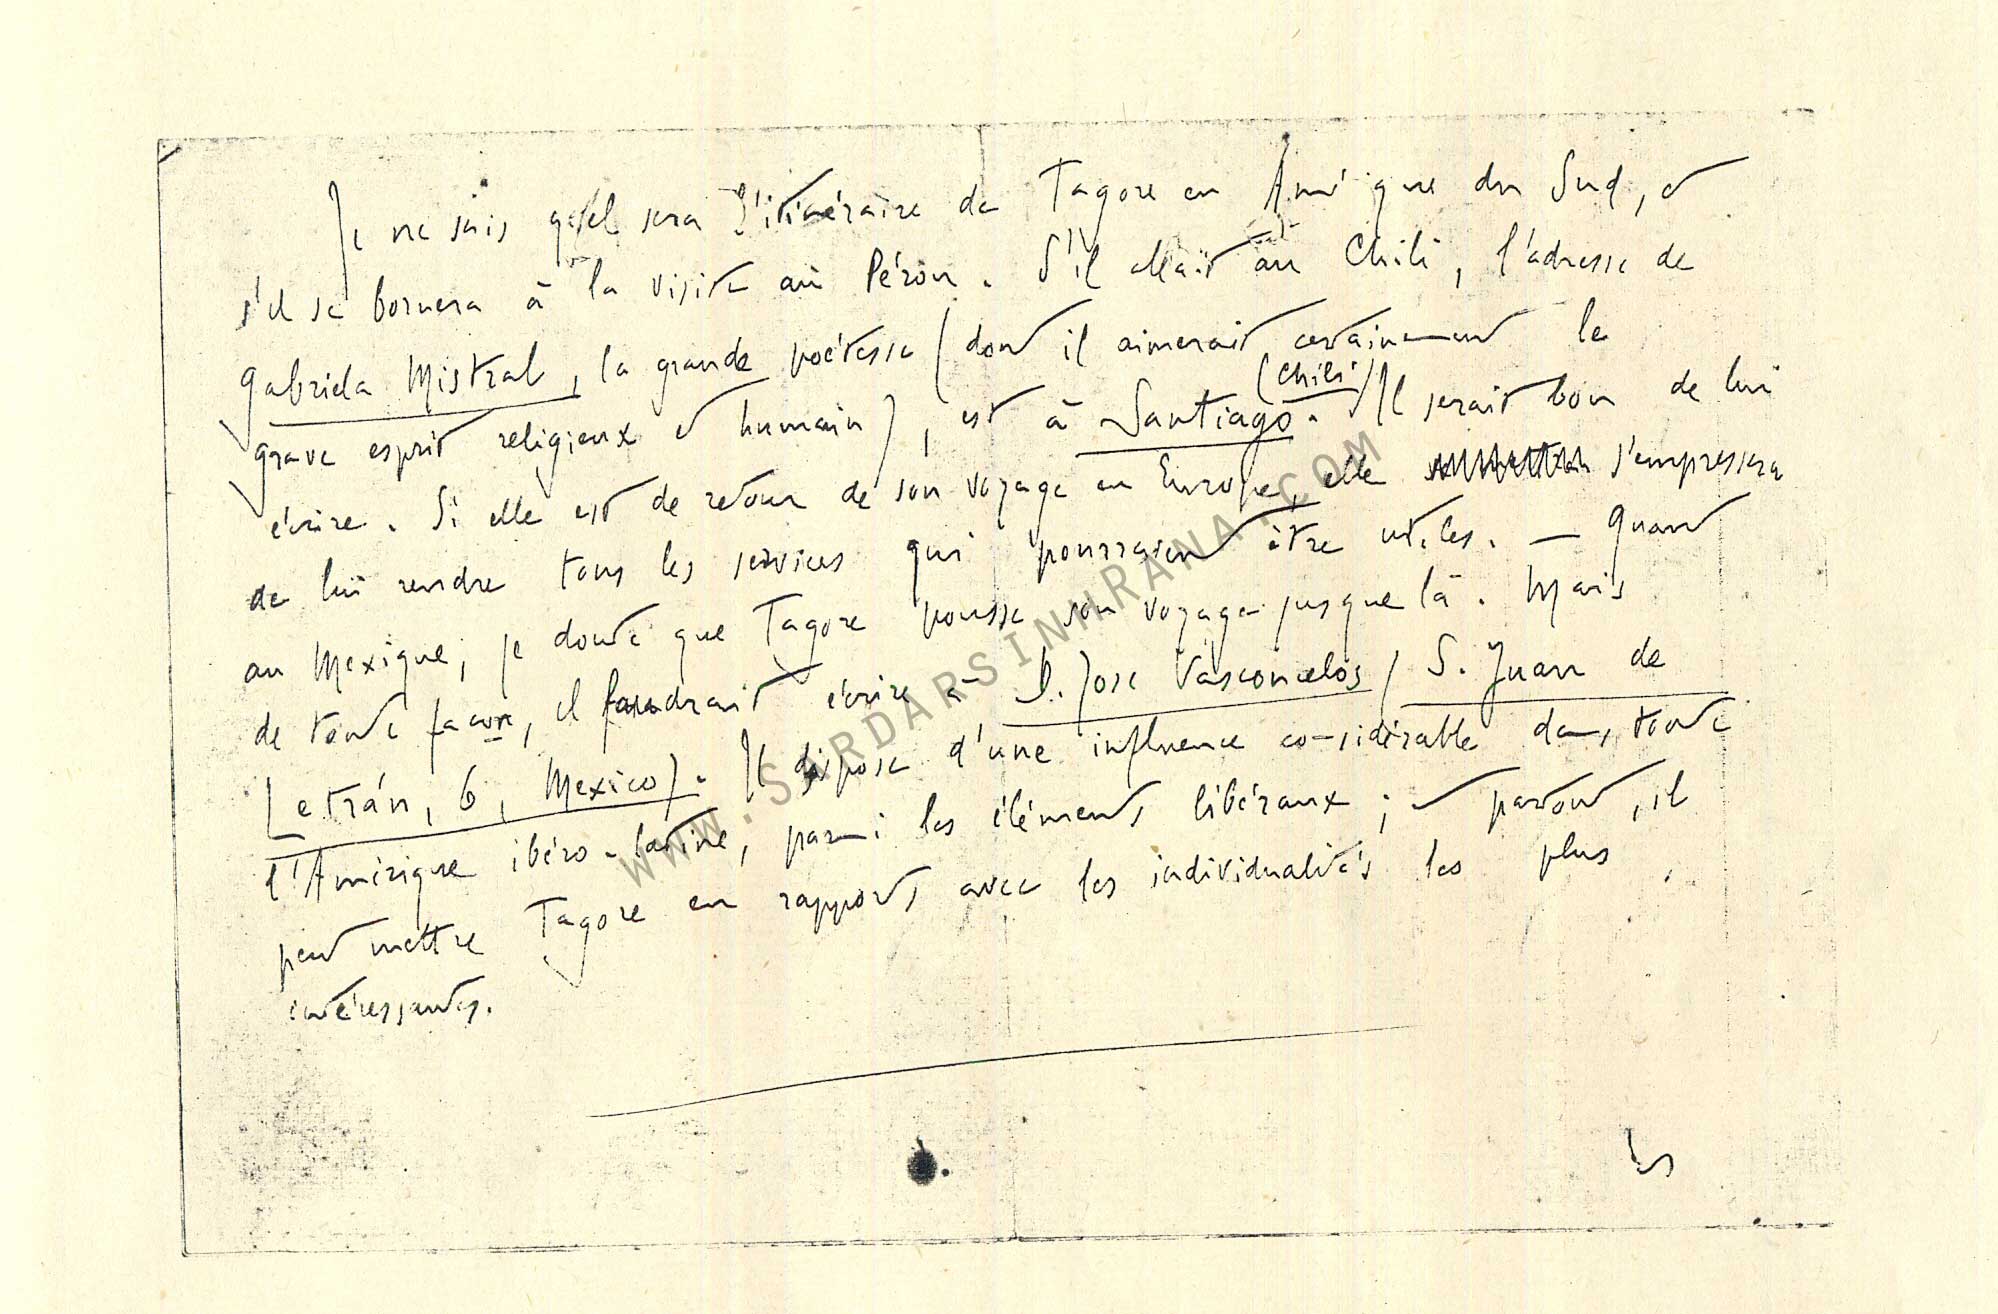 Je ne sais quel sera l'itinéraire de Tagore en Amérique du Sud, et
s'il se bornera à la visite au Pérou. S'il allait au Chili, l'adresse de
Gabriela Mistral, la grande poétesse (dont il aimerait certainement le
grave esprit religieux et humain), est à Santiago. (Chili) Il serait bon de lui
écrire. Si elle est de retour de son voyage en Europe, elle s'empressera
de lui rendre tous les services qui pourraient être utiles. — Quant
au Mexique, je doute que Tagore pousse son voyage jusque là. Mais
de toute façon, il faudrait écrire à D. Jose Vasconcelos (S. Juan de
Letrán, 6, Mexico). Il dispose d'une influence considérable dans toute
l'Amérique ibéro-latine, parmi les éléments libéraux ; et partout, il
peut mettre Tagore en rapports avec les individualités les plus
intéressantes.
WWW.SARDARSINHRANA.COM